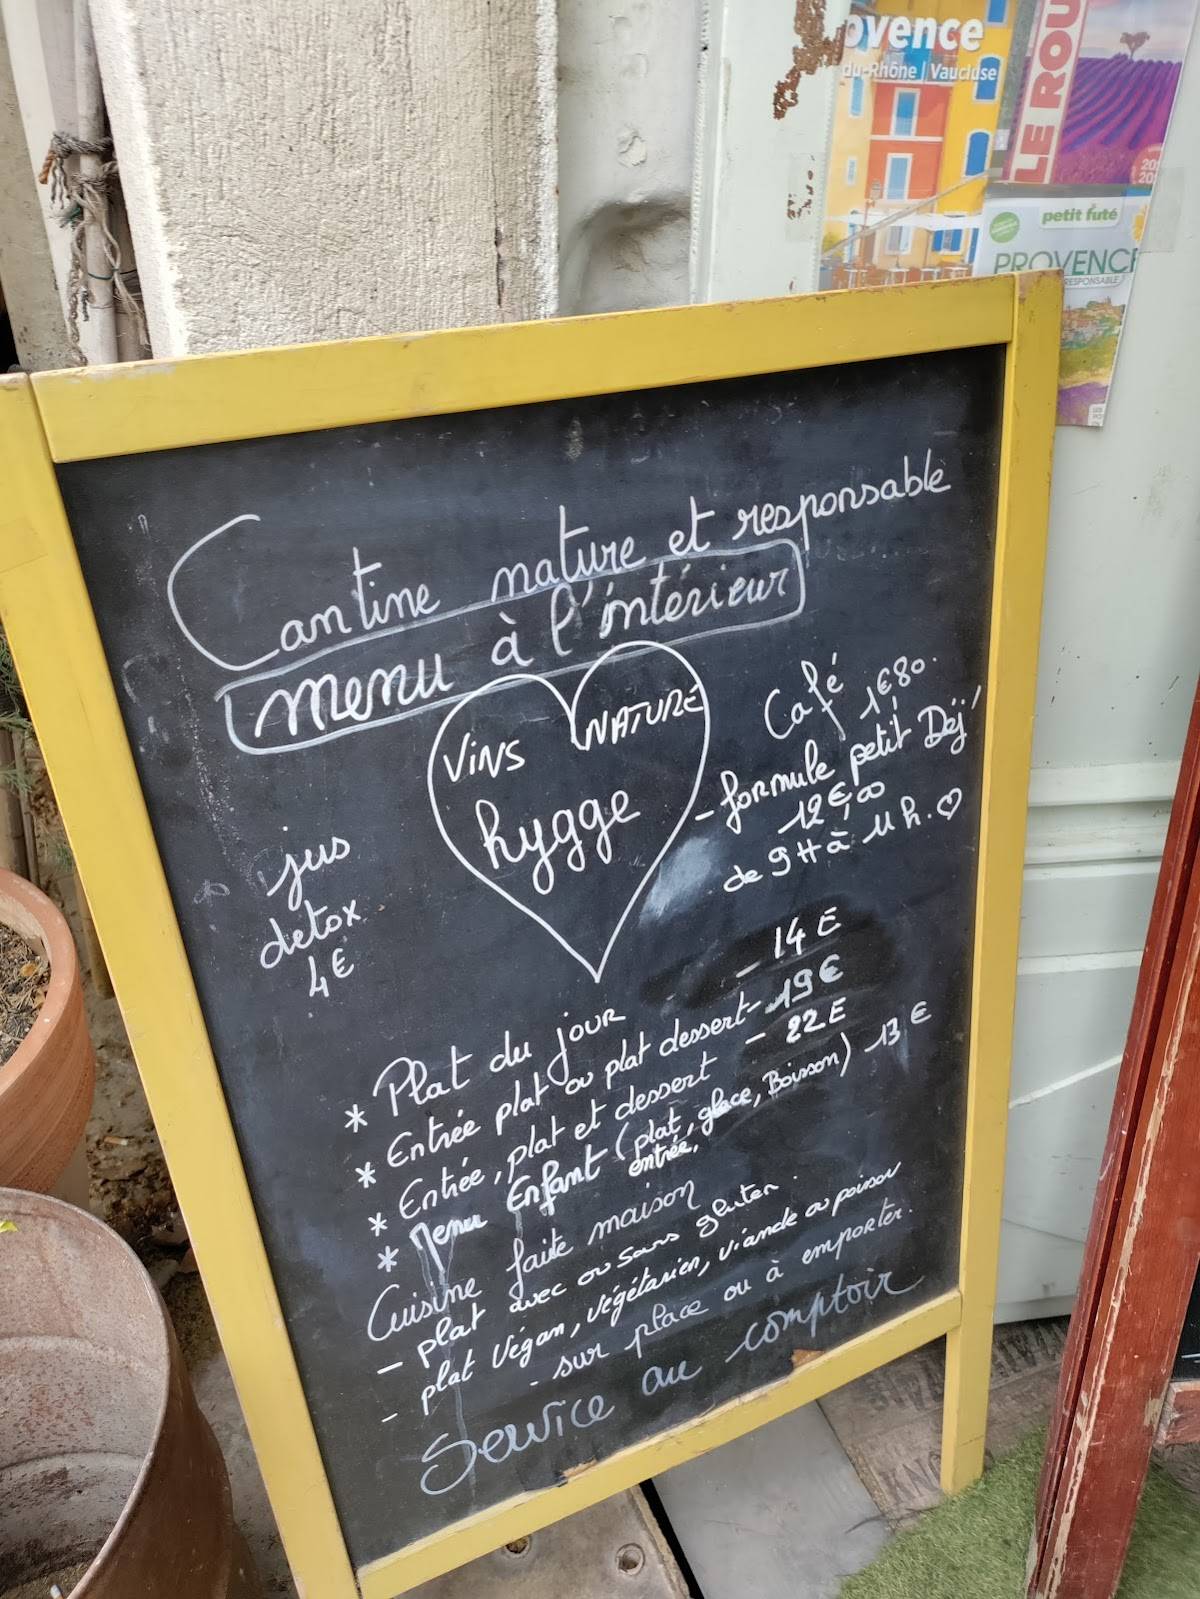 ovence
du-Rhône | Vaucluse
LE ROU
petit futé
PROVENCE
RESPONSABLE
Cantine nature et responsable
menu à l'intérieur
VINS NATURE
hygge
Café
1€80.
- formule petit Déj'
12€,00
de 9H à 11h. ♡
jus
detox
4€
* Plat du jour - 14 €
* Entrée plat ou plat dessert - 19€
* Entrée, plat et dessert - 22€
* Menu Enfant (plat, glace, Boisson) 13 €
entrée,
Cuisine faite maison
- plat avec ou sans gluten.
- plat végan, végétarien, viande ou poisson
- sur place ou à emporter.
Service au comptoir